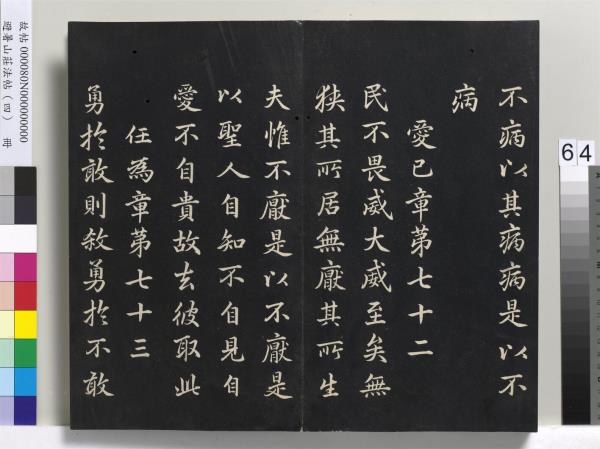 不病以其病病是以不
病
愛己章第七十二
民不畏威大威至矣無
狹其所居無厭其所生
夫惟不厭是以不厭是
以聖人自知不自見自
愛不自貴故去彼取此
任為章第七十三
勇於敢則殺勇於不敢
故帖 000080N000000000
避暑山莊法帖（四） 冊
64